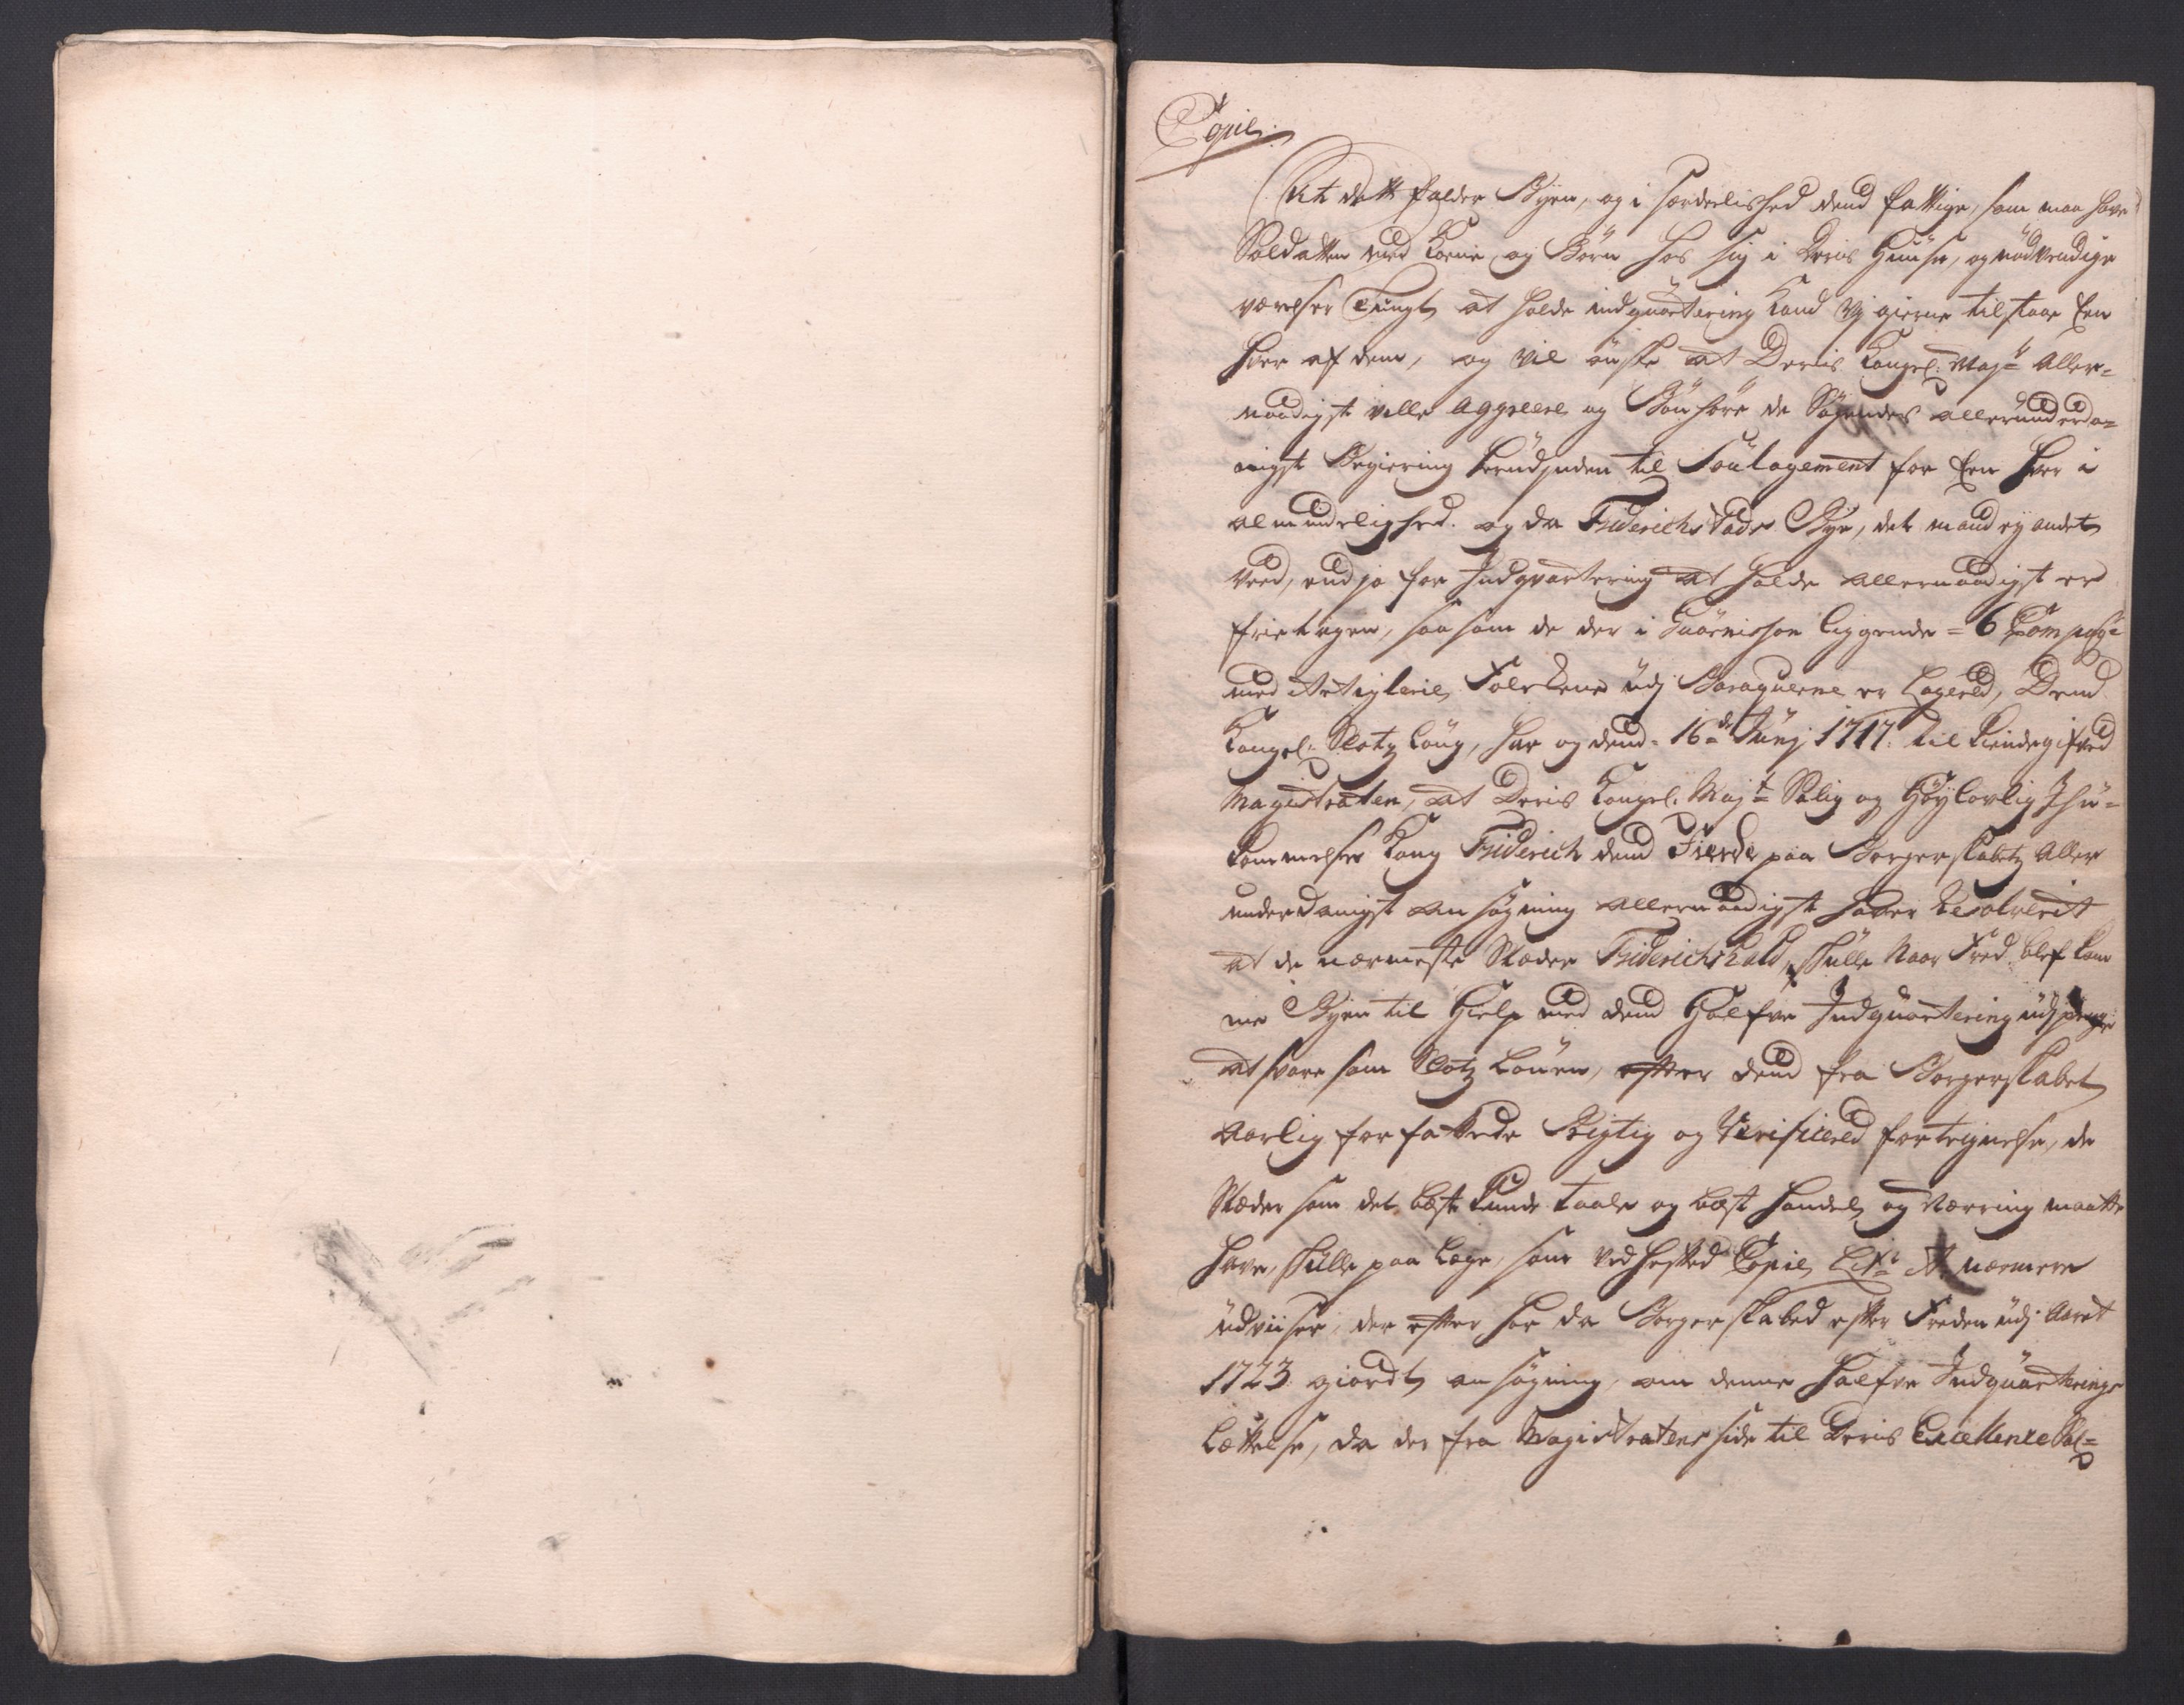 Copie.
At dett falder Byen, og i særdeelished dend fattige, som maa have
Soldatten med Kone og Börn hos sig i deris Huuse, og nödvendige
værelser Tungt at holde indqvartering kand vj gierne tilstaae Een
hver af dem, og vil önske at Deris Kongel: Maj:tt Aller=
naadigst ville aggreere og Bönhöre de Søgendes allerunderda=
nigst Begiering til Soulagement for Een hver i
almindelighed. og da Friderichstads Bye, det mand ey andet
veed, end jo for Indqvartering at holde allernaadigst er
frietagen, saasom de der i Guarnisson liggende = 6 Compag:
med Artiglerie Folckene udj Baraquerne er Logered, Dend
Kongel: Slotz Lov, har og dend 16de Junj 1717. tilkiendegifved
Magistraten, at Deris Kongel: Maj:tt Salig og Höylovlig Ihu=
kommelse Kong Friderich dend Fierde paa Borgerskabetz Aller
underdanigst ansøgning allernaadigst haver Resolverit
at de nærmeste Stæder Friderichshald, skulle Naar Fred blef kom
me Byen til Hielp med dend Halfve Indquartering udj penge
at svare som Slotz Loven, efter dend fra Borgerskabet
Aarlig forfattede Rigtig og Verificered fortegnelse, de
Stæder som det best kunde taale og best handel og Nærring maatte
have, skulle paa Lege, som vedhefted Copie Litr: A. nærmere
udviiser, der efter har da Borgerskabed efter Freden udj Aaret
1723 giordt ansøgning om denne halfve Indquarterings
Lettelse, da der fra Magistratens side til Deris Excellence Sal=